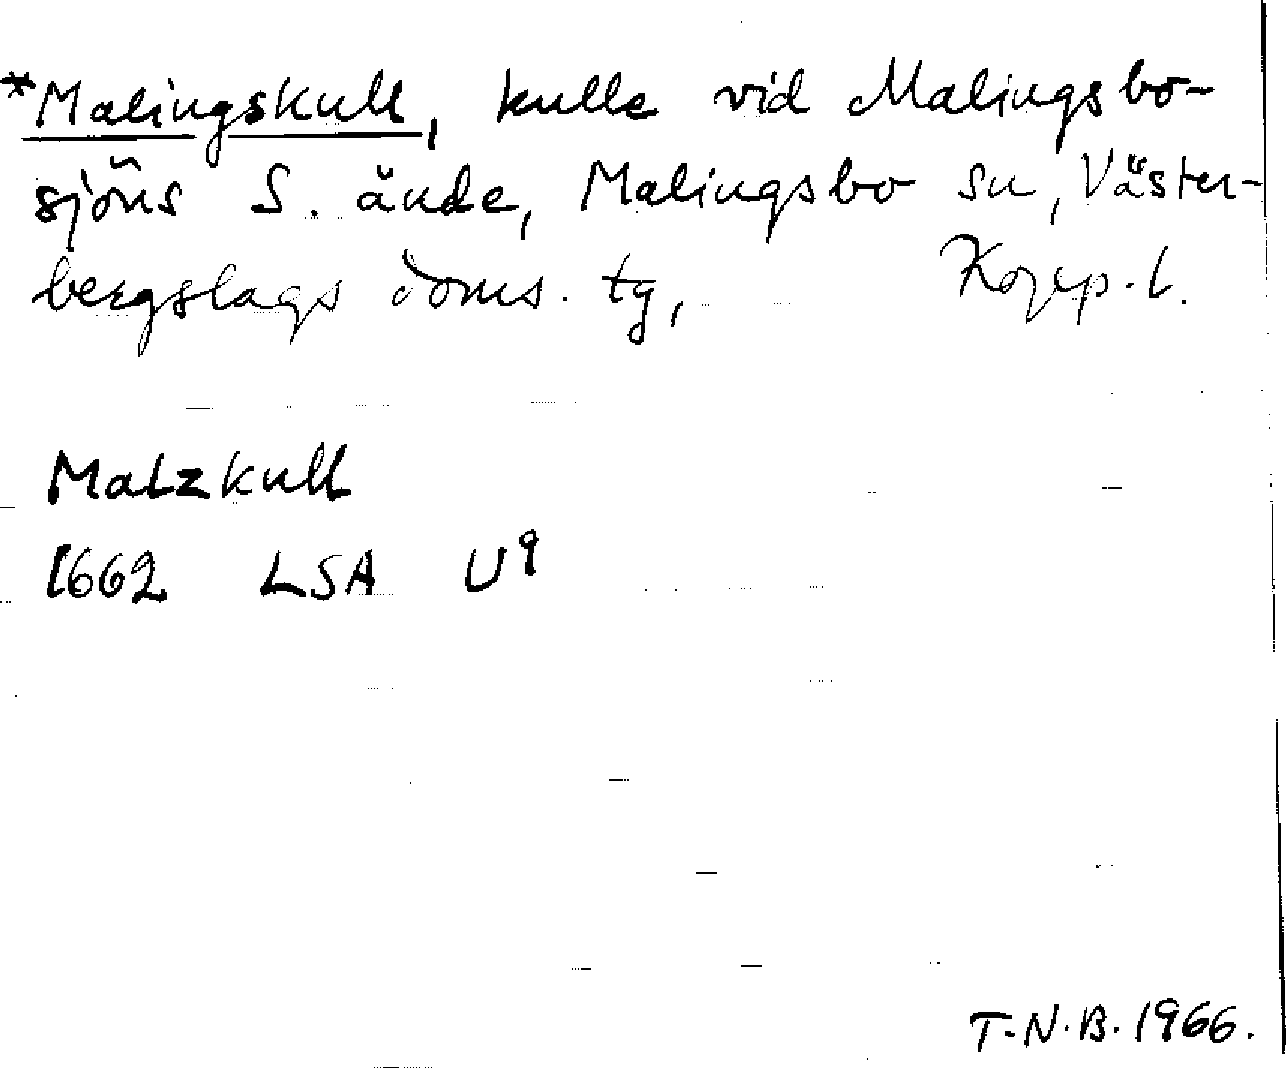 *Malingskull, kulle vid Malingsbo-
sjöns S. ände, Malingsbo sn, Väster-
bergslags doms. tg, Kopp. l.
Malzkull
1662 LSA U9
T.N.B. 1966.